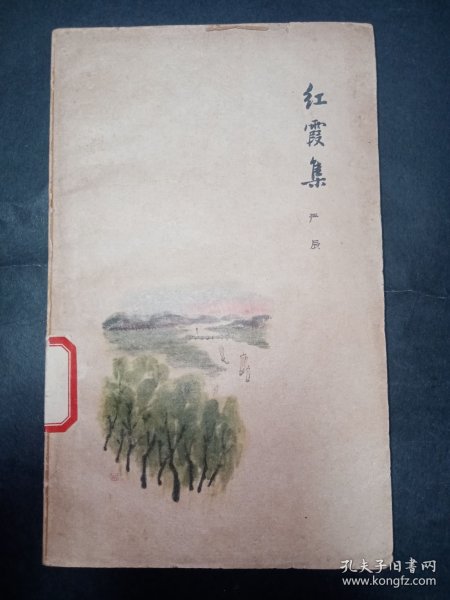 红霞集
严辰
孔夫子旧书网
www.kongfz.com